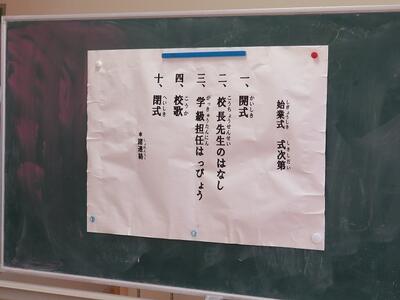 始業式 式次第
一、開式
二、校長先生のはなし
三、学級担任はっぴょう
四、校歌
十、閉式
＊諸連絡